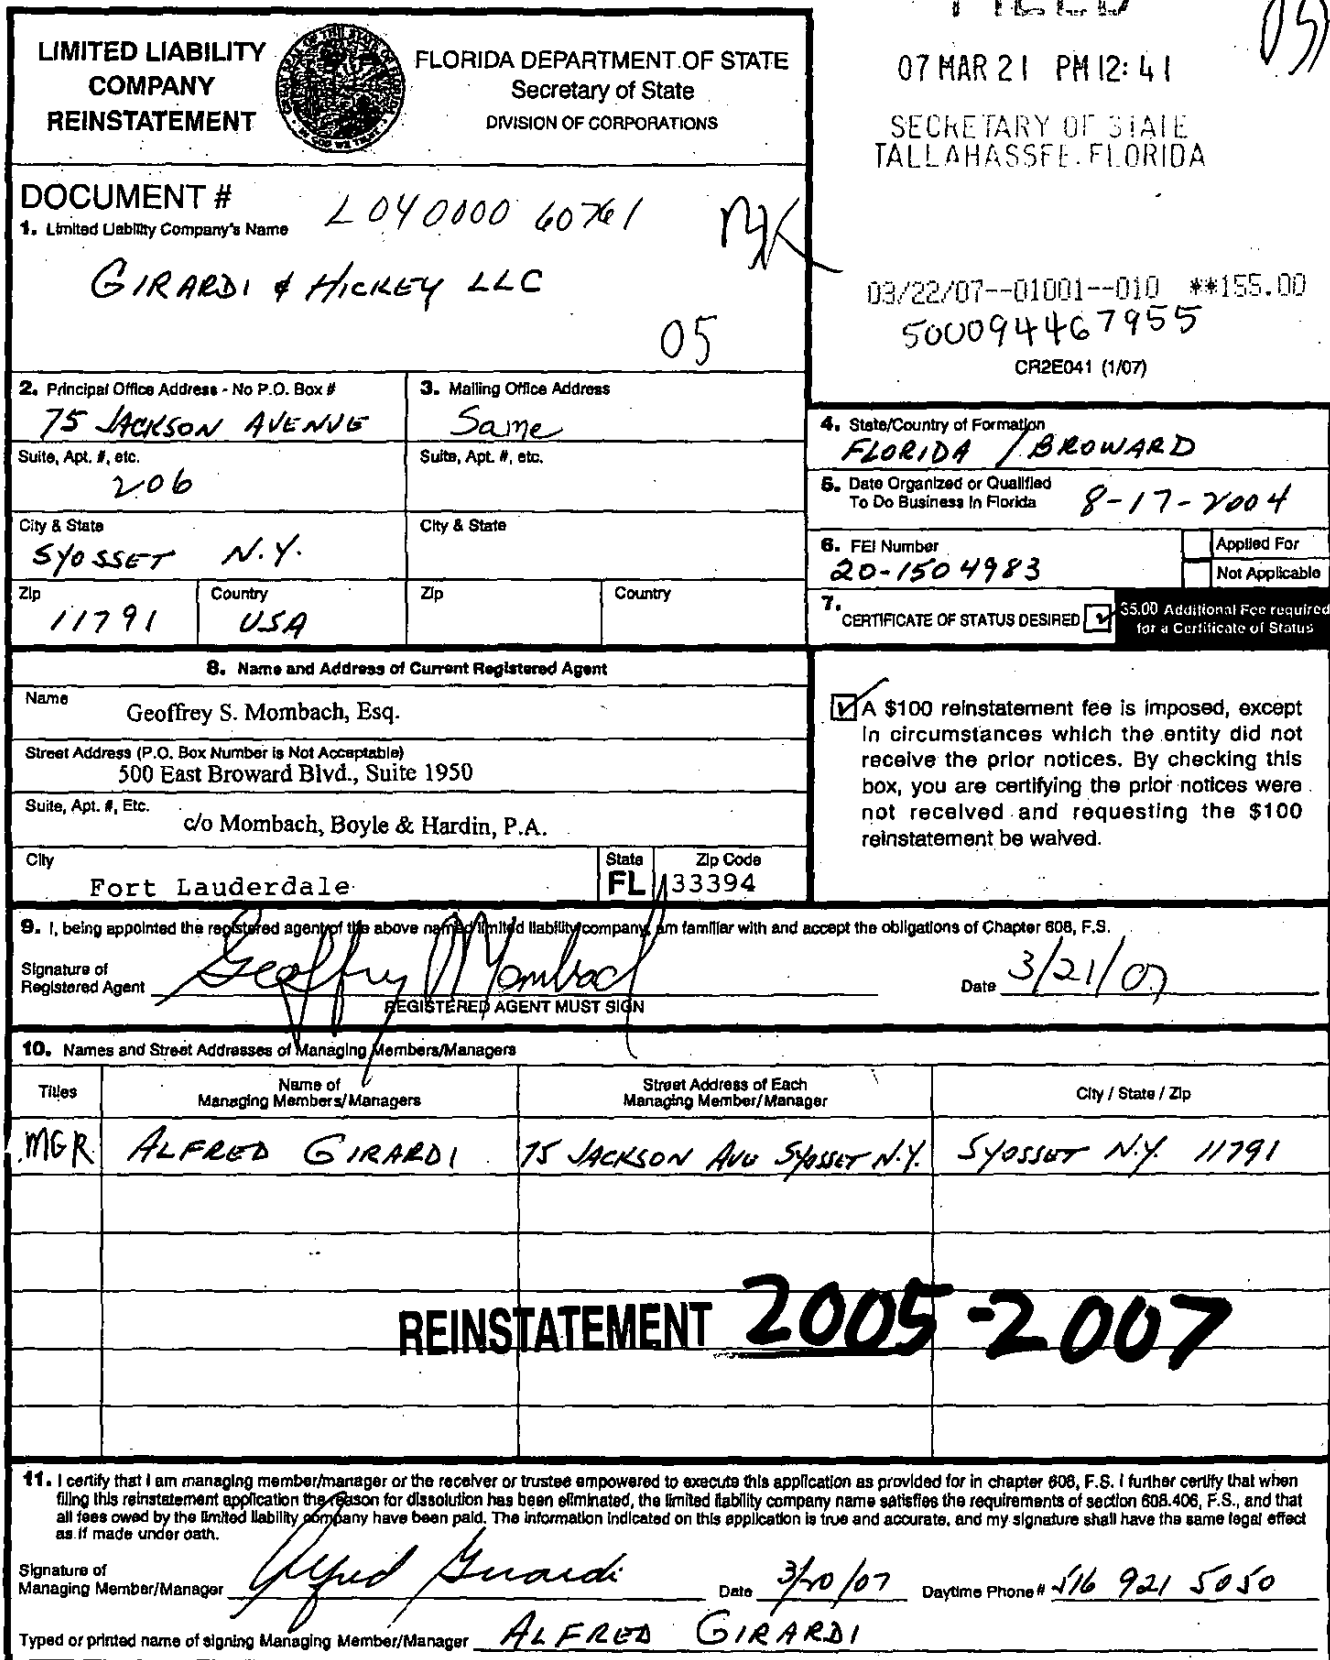 FILED
07 MAR 21 PM 12:41
SECRETARY OF STATE
TALLAHASSEE. FLORIDA
LIMITED LIABILITY
COMPANY
REINSTATEMENT
FLORIDA DEPARTMENT OF STATE
Secretary of State
DIVISION OF CORPORATIONS
DOCUMENT # L040000 60761
1. Limited Liability Company's Name
GIRARDI & HICKEY LLC
05
03/22/07--01001--010 **155.00
500094467955
CR2E041 (1/07)
2. Principal Office Address - No P.O. Box #
75 JACKSON AVENUE
Suite, Apt. #, etc.
206
City & State
SYOSSET N.Y.
Zip
11791
Country
USA
3. Mailing Office Address
Same
Suite, Apt. #, etc.
City & State
Zip
Country
4. State/Country of Formation
FLORIDA / BROWARD
5. Date Organized or Qualified
To Do Business in Florida 8-17-2004
6. FEI Number
20-1504983
Applied For
Not Applicable
7. CERTIFICATE OF STATUS DESIRED
$5.00 Additional Fee required
for a Certificate of Status
8. Name and Address of Current Registered Agent
Name
Geoffrey S. Mombach, Esq.
Street Address (P.O. Box Number is Not Acceptable)
500 East Broward Blvd., Suite 1950
Suite, Apt. #, Etc.
c/o Mombach, Boyle & Hardin, P.A.
City
Fort Lauderdale
State
FL
Zip Code
33394
A $100 reinstatement fee is imposed, except
in circumstances which the entity did not
receive the prior notices. By checking this
box, you are certifying the prior notices were
not received and requesting the $100
reinstatement be waived.
9. I, being appointed the registered agent of the above named limited liability company, am familiar with and accept the obligations of Chapter 608, F.S.
Signature of
Registered Agent Geoffrey Mombach
REGISTERED AGENT MUST SIGN
Date 3/21/07
10. Names and Street Addresses of Managing Members/Managers
Titles
Name of
Managing Members/Managers
Street Address of Each
Managing Member/Manager
City / State / Zip
MGR ALFRED GIRARDI 75 JACKSON AVE SYOSSET N.Y. SYOSSET N.Y. 11791
REINSTATEMENT 2005-2007
11. I certify that I am managing member/manager or the receiver or trustee empowered to execute this application as provided for in chapter 608, F.S. I further certify that when
filing this reinstatement application the reason for dissolution has been eliminated, the limited liability company name satisfies the requirements of section 608.406, F.S., and that
all fees owed by the limited liability company have been paid. The information indicated on this application is true and accurate, and my signature shall have the same legal effect
as if made under oath.
Signature of
Managing Member/Manager Alfred Girardi Date 3/20/07 Daytime Phone # 516 921 5050
Typed or printed name of signing Managing Member/Manager ALFRED GIRARDI